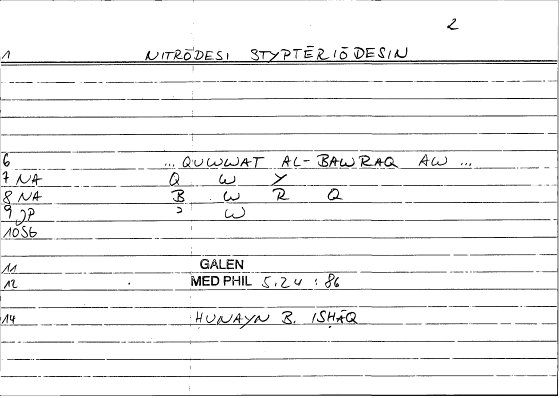 2
1 NITRŌDESI STYPTĒRIŌDESIN
6 ... QUWWAT AL-BAWRAQ AW ...
7 NA Q W Y
8 NA B W R Q
9 JP ʾ W
10 SG
11 GALEN
12 MED PHIL 5.24 : 86
14 HUNAYN B. ISHĀQ